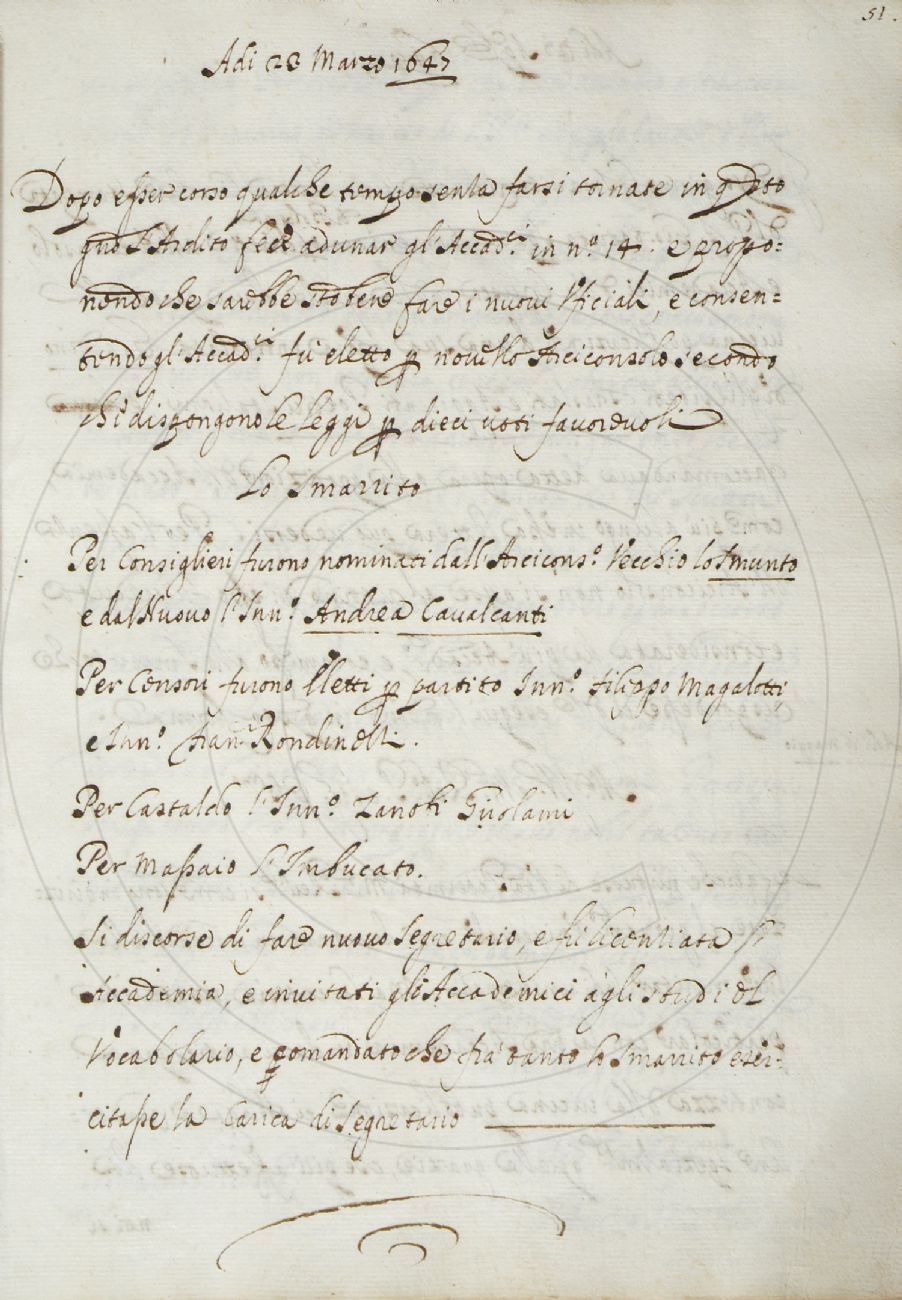 51.
Adi 28 Marzo 1647
Dopo esser corso qualche tempo senza farsi tornate in
l'Ardito fece adunar gl'Accad.ci in n.º 14. e propo=
nendo che sarebbe stato bene fare i nuovi Vficiali, e consen=
tendo gl'Accad.ci fu eletto p novello Arciconsolo secondo
che dispongono le leggi p dieci voti favorevoli
Lo Smarrito
Per Consiglieri furono nominati dall'Arcicons.º Vecchio lo Smunto
e dal Nuovo l'Inn.º Andrea Cavalcanti
Per Censori furono Eletti p partito Inn.º Filippo Magalotti,
e Inn.º Fran.co Rondinelli.
Per Castaldo l'Inn.º Zanobi Girolami
Per Massaio l'Imbucato.
Si discorse di fare nuovo Segretario, e fu licenziata l'
Accademia, e invitati gli Accademici agli studi del
Vocabolario, e comandato che fra tanto lo Smarrito eser=
citasse la Carica di Segretario